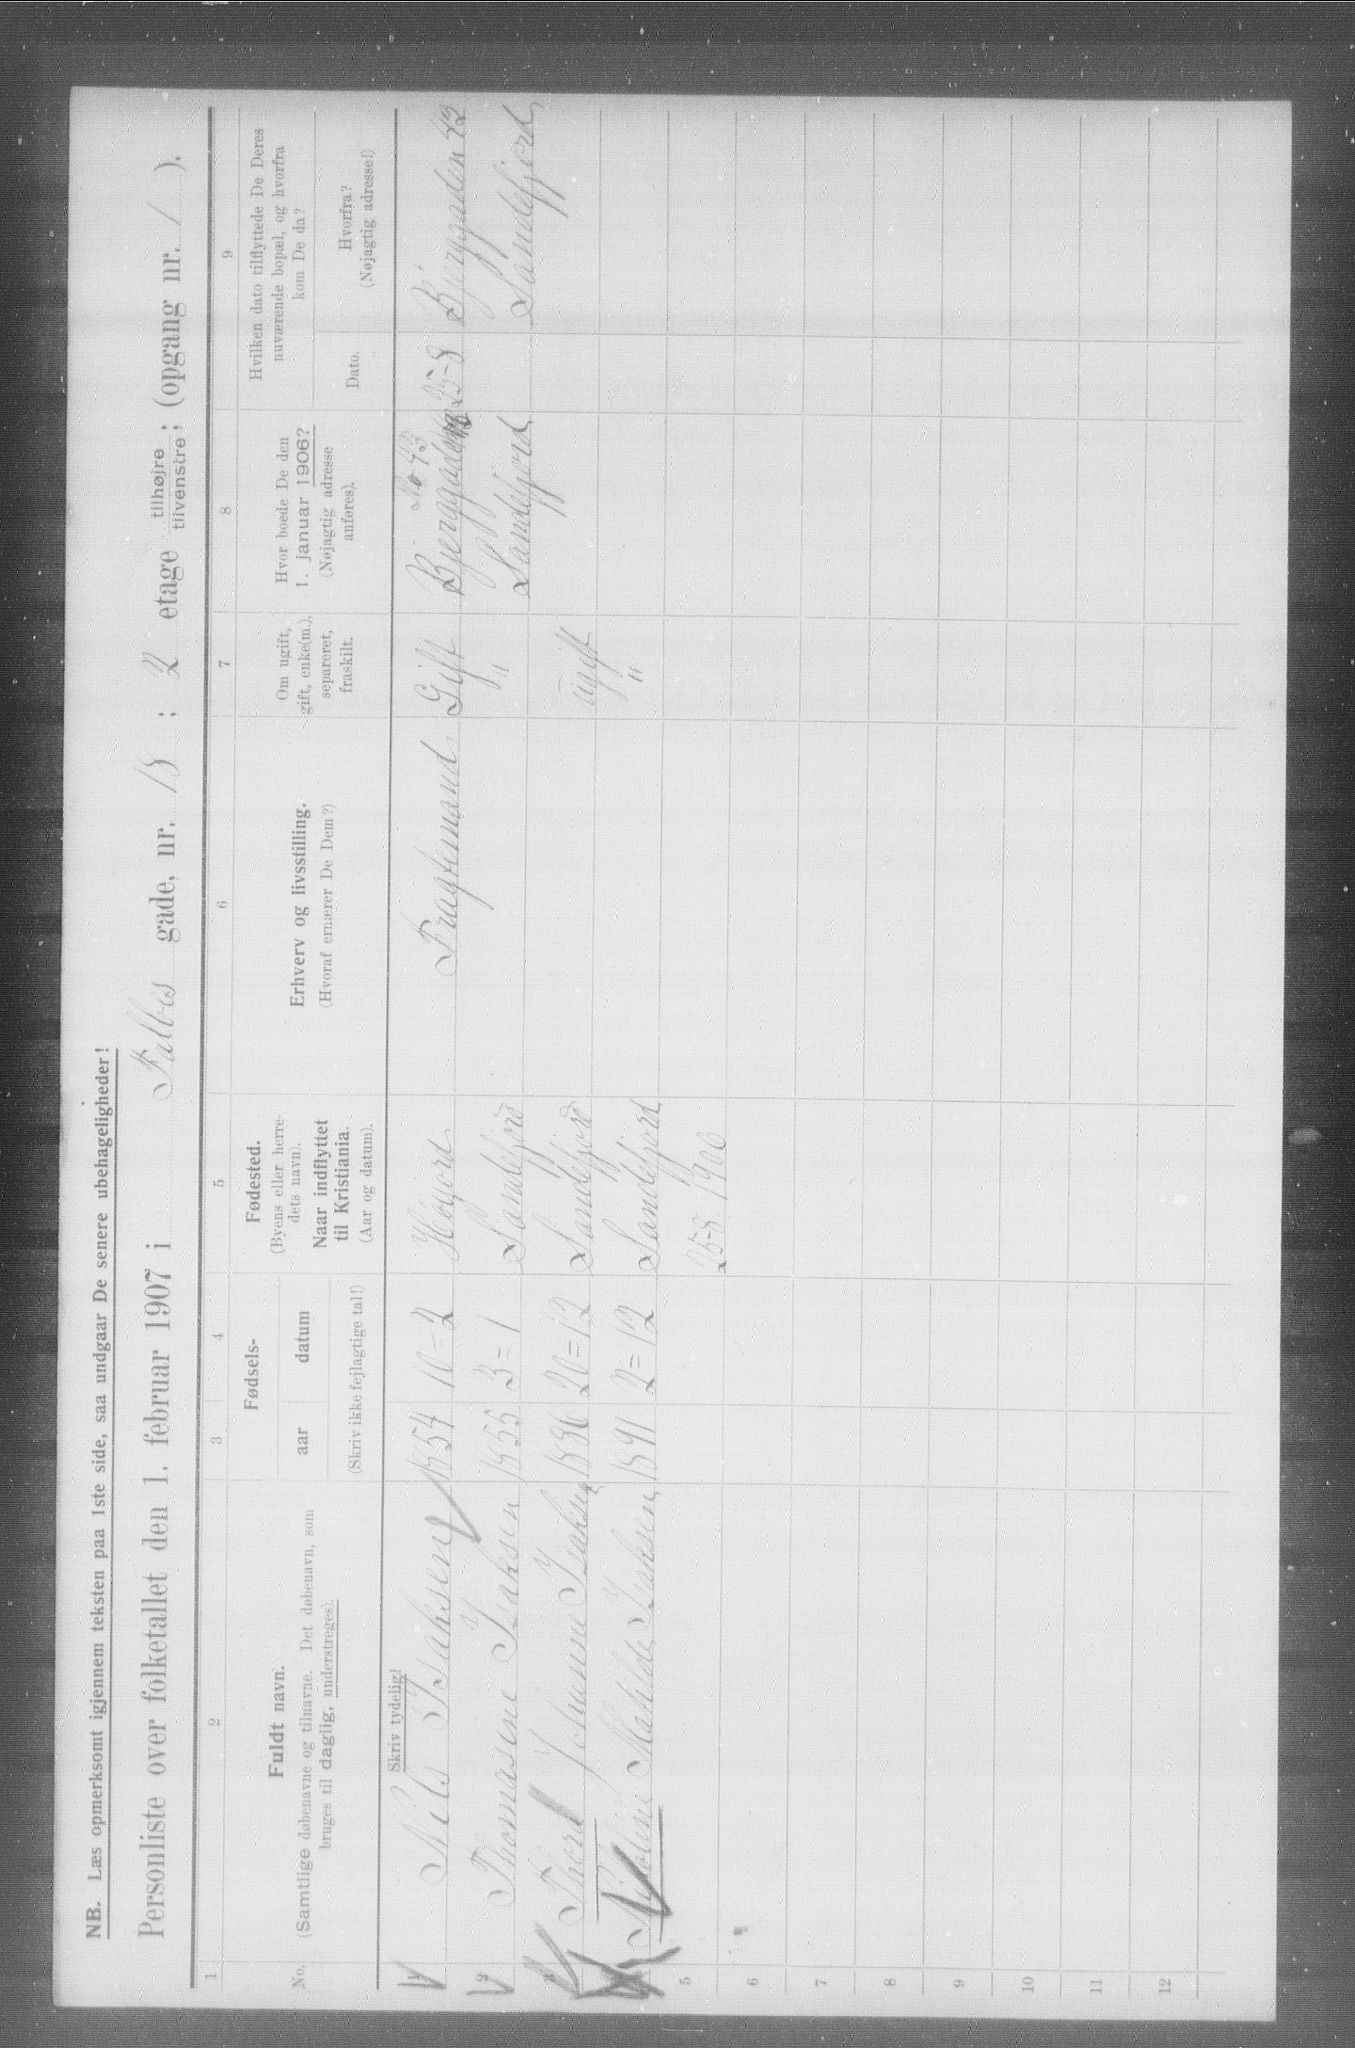 NB. Læs opmerksomt igjennem teksten paa 1ste side, saa undgaar De senere ubehageligheder!
Personliste over folketallet den 1. februar 1907 i Falbes gade, nr. 13 ; 2 etage tilhøjre ; tilvenstre ; (opgang nr. 1 ).
1 2 3 4 5 6 7 8 9
No.
Fuldt navn.
(Samtlige døbenavne og tilnavne. Det døbenavn, som
bruges til daglig, understreges).
Fødsels-
aar datum
(Skriv ikke fejlagtige tal!)
Fødested.
(Byens eller herre-
dets navn).
Naar indflyttet
til Kristiania.
(Aar og datum).
Erhverv og livsstilling.
(Hvoraf ernærer De Dem?)
Om ugift,
gift, enke(m.),
separeret,
fraskilt.
Hvor boede De den
1. januar 1906?
(Nøjagtig adresse
anføres).
Hvilken dato tilflyttede De Deres
nuværende bopæl, og hvorfra
kom De da?
Dato.
Hvorfra?
(Nøjagtig adresse!)
Skriv tydelig!
No 43
1 Nils Isaksen 1854 10=2 Fragtemand Gift Bjerggaden 25-8 Bjerggaden 43
2 Thomasine Isaksen 1855 3=1 Sandefjord " Sandefjord Sandefjord
3 Thora Johanne Isaksen 20=12 Sandefjord ugift
4 Nikoline Matilde Isaksen 1891 2=12 Sandefjord "
5 25-8 1906
6
7
8
9
10
11
12